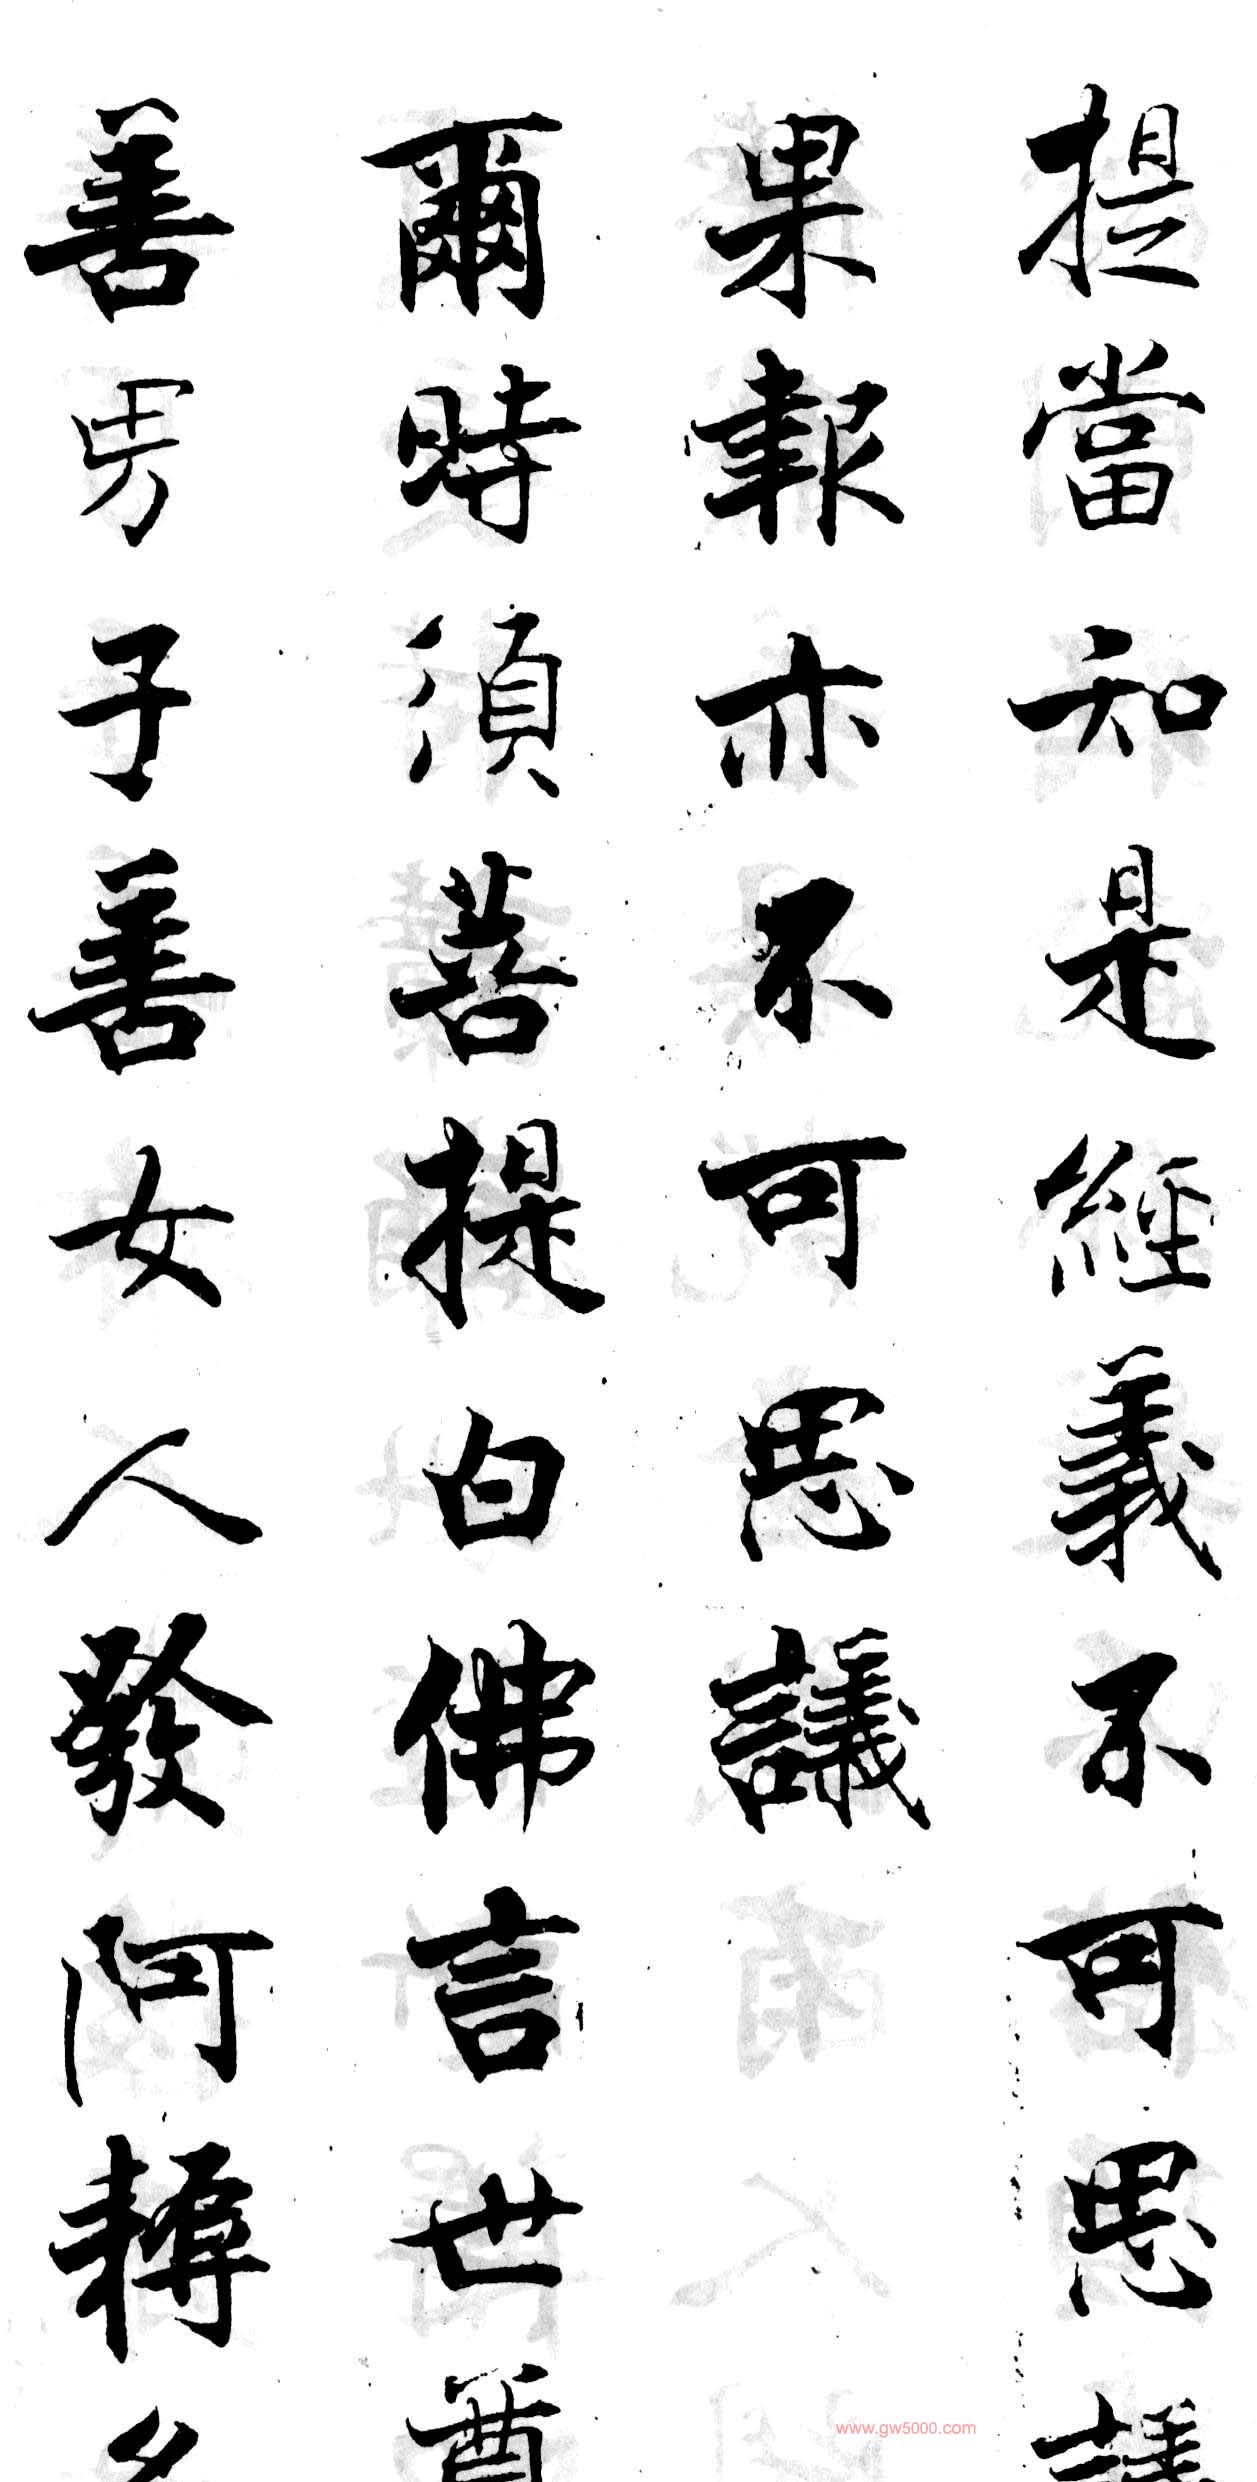 提當知是經義不可思議
果報亦不可思議
爾時須菩提白佛言世尊
善男子善女人發阿耨多
www.gw5000.com